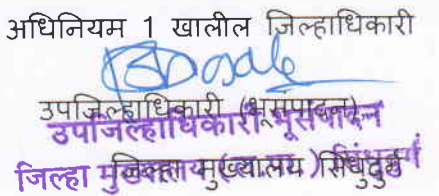 अधिनियम 1 खालील जिल्हाधिकारी
उपजिल्हाधिकारी (भूसंपादन)
उपजिल्हाधिकारी भूसंपादन
जिल्हा मुख्यालय सिंधुदुर्ग
जिल्हा